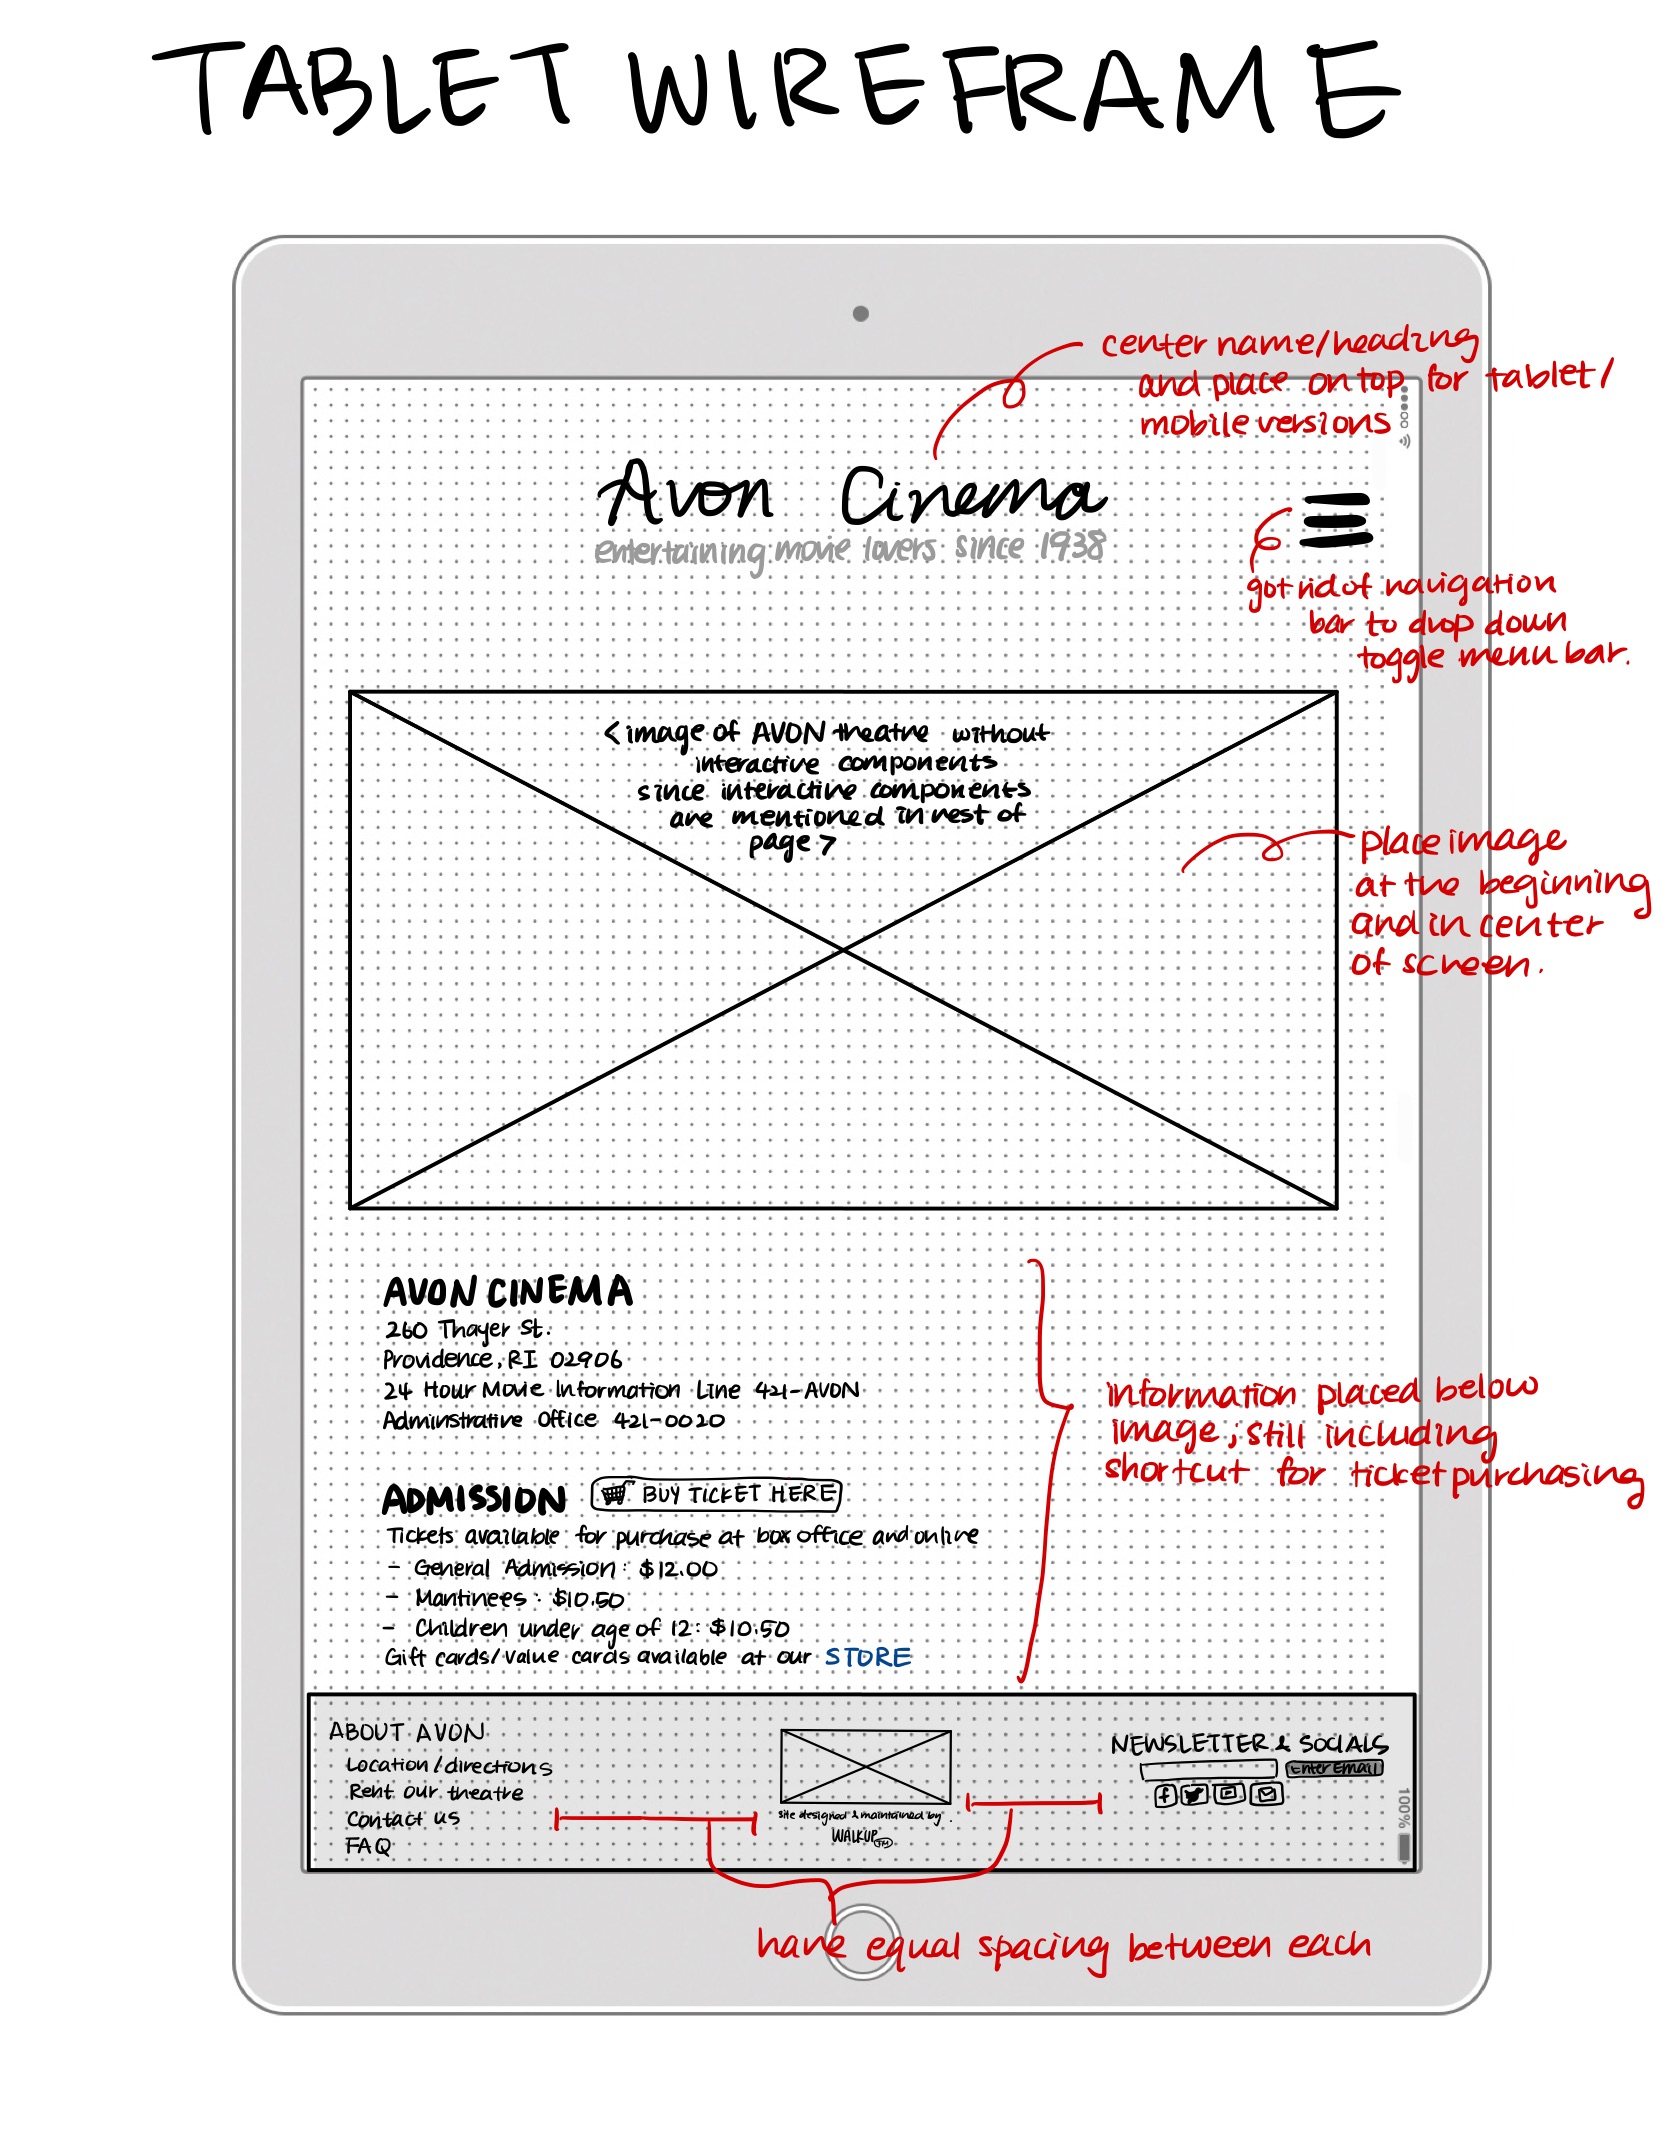 TABLET WIREFRAME
center name/heading
and place on top for tablet/
mobile versions
Avon Cinema
entertaining movie lovers since 1938
got rid of navigation
bar to drop down
toggle menu bar.
<image of AVON theatre without
interactive components
since interactive components
are mentioned in rest of
page>
place image
at the beginning
and in center
of screen.
AVON CINEMA
260 Thayer St.
Providence, RI 02906
24 Hour Movie Information Line 421-AVON
Adminstrative Office 421-0020
information placed below
image; still including
shortcut for ticket purchasing
ADMISSION BUY TICKET HERE
Tickets available for purchase at box office and online
- General Admission: $12.00
- Mantinees: $10.50
- Children under age of 12: $10.50
Gift cards/value cards available at our STORE
ABOUT AVON
Location/directions
Rent our theatre
Contact us
FAQ
site designed & maintained by
WALKUP TM
NEWSLETTER & SOCIALS
Enter Email
100%
have equal spacing between each